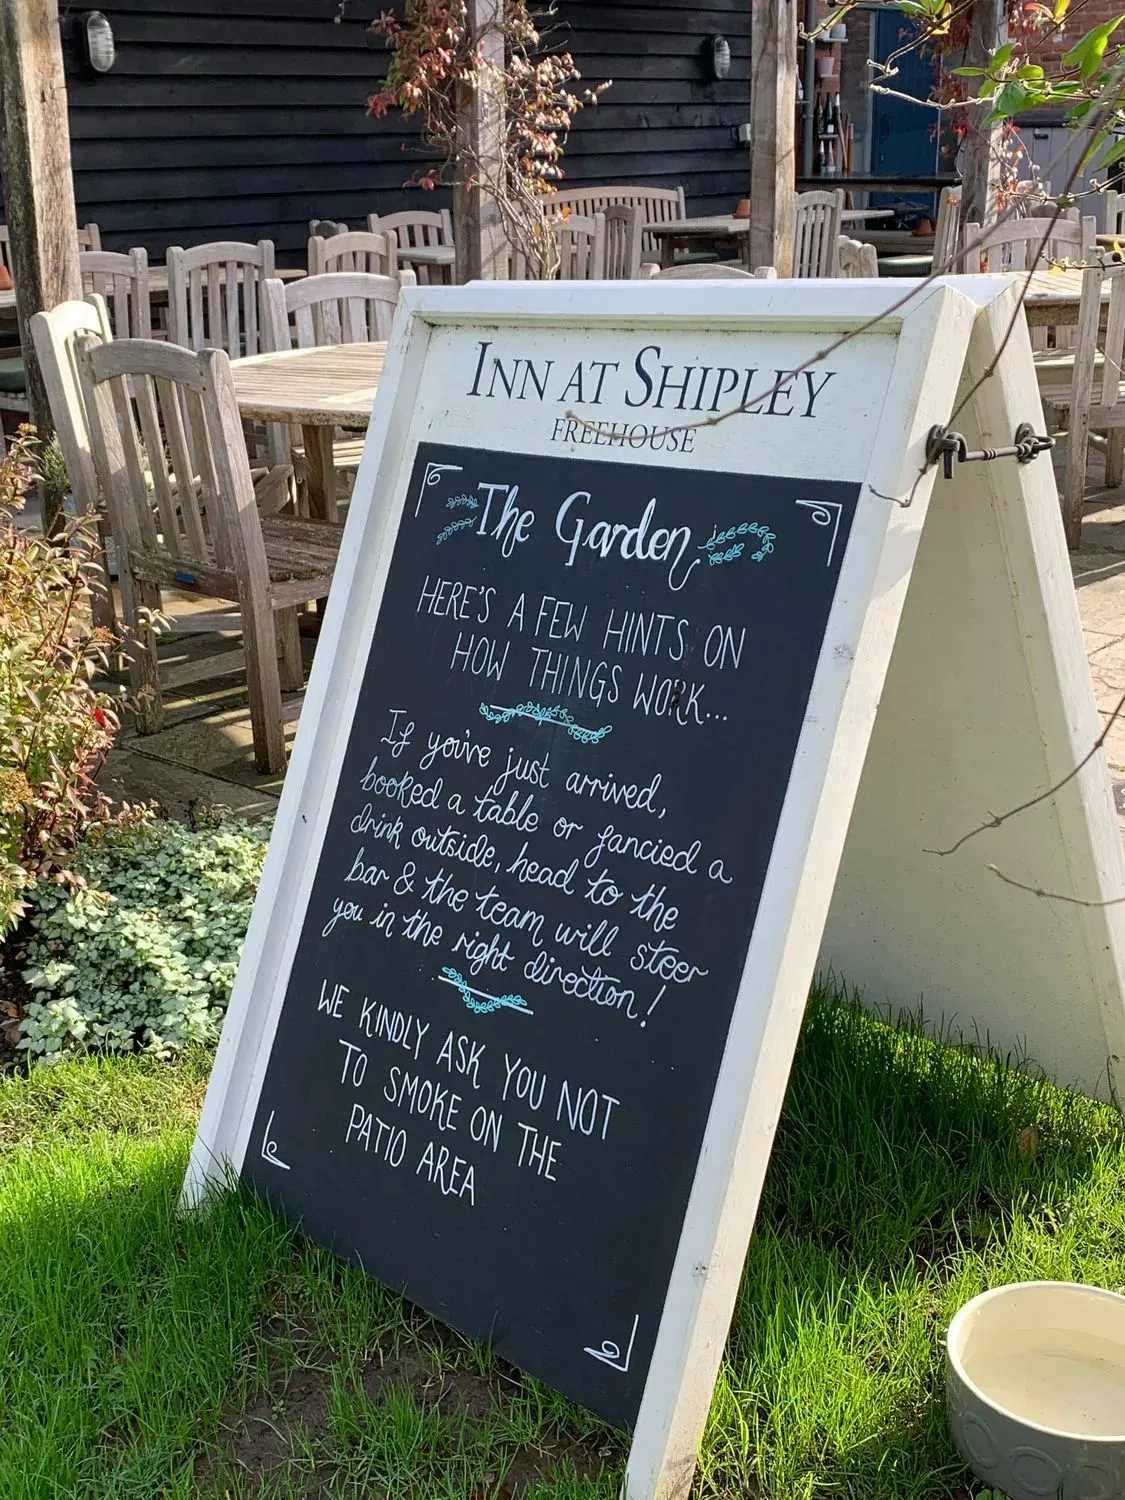 INN AT SHIPLEY
FREEHOUSE
The Garden
HERE'S A FEW HINTS ON
HOW THINGS WORK...
If you've just arrived,
booked a table or fancied a
drink outside, head to the
bar & the team will steer
you in the right direction!
WE KINDLY ASK YOU NOT
TO SMOKE ON THE
PATIO AREA